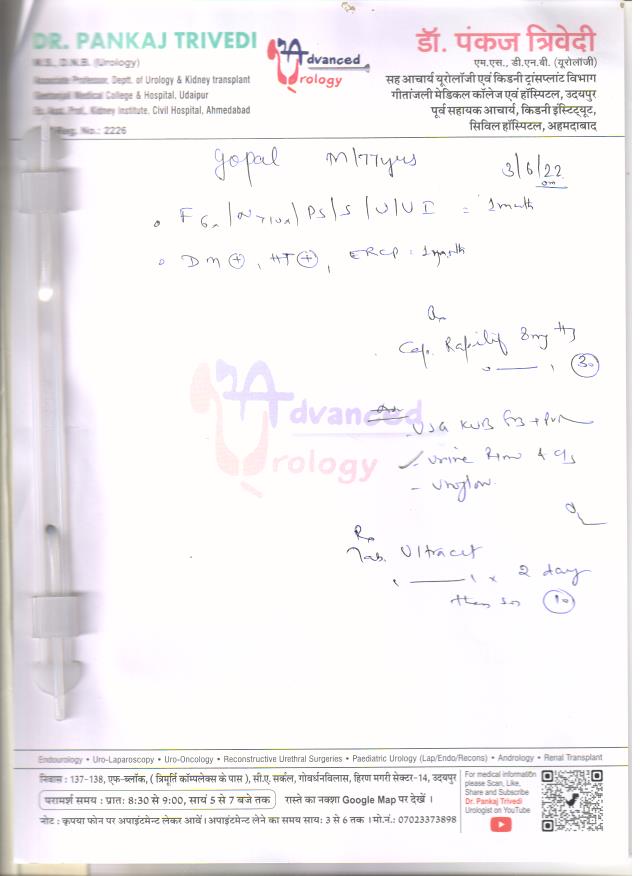 DR. PANKAJ TRIVEDI
M.S., D.N.B. (Urology)
Associate Professor, Deptt. of Urology & Kidney transplant
Geetanjali Medical College & Hospital, Udaipur
Ex. Asst. Prof., Kidney Institute, Civil Hospital, Ahmedabad
Reg. No.: 2226
Advanced
Urology
डॉ. पंकज त्रिवेदी
एम.एस., डी.एन.बी. (यूरोलॉजी)
सह आचार्य यूरोलॉजी एवं किडनी ट्रांसप्लांट विभाग
गीतांजली मेडिकल कॉलेज एवं हॉस्पिटल, उदयपुर
पूर्व सहायक आचार्य, किडनी इंस्टिट्यूट,
सिविल हॉस्पिटल, अहमदाबाद
Gopal M/77yrs
3/6/22
PS/S/U/UI = 1 month
DM +, HT +, ERCP: 1 month
Cap. Rapilif 8mg HS
30
Advanced
Urology
USG KUB + PVR
- Urine R+m & C/S
- Uroflow
Rx
Tab. Ultracet
x 2 day
then SOS 10
Endourology • Uro-Laparoscopy • Uro-Oncology • Reconstructive Urethral Surgeries • Paediatric Urology (Lap/Endo/Recons) • Andrology • Renal Transplant
निवास : 137-138, एफ-ब्लॉक, ( त्रिमूर्ति कॉम्पलेक्स के पास ), सी.ए. सर्कल, गोवर्धनविलास, हिरण मगरी सेक्टर-14, उदयपुर
परामर्श समय : प्रातः 8:30 से 9:00, सायं 5 से 7 बजे तक रास्ते का नक्शा Google Map पर देखें ।
नोट : कृपया फोन पर अपाइंटमेन्ट लेकर आवें । अपाइंटमेन्ट लेने का समय सायः 3 से 6 तक । मो.नं.: 07023373898
For medical information
please Scan, Like,
Share and Subscribe
Dr. Pankaj Trivedi
Urologist on YouTube